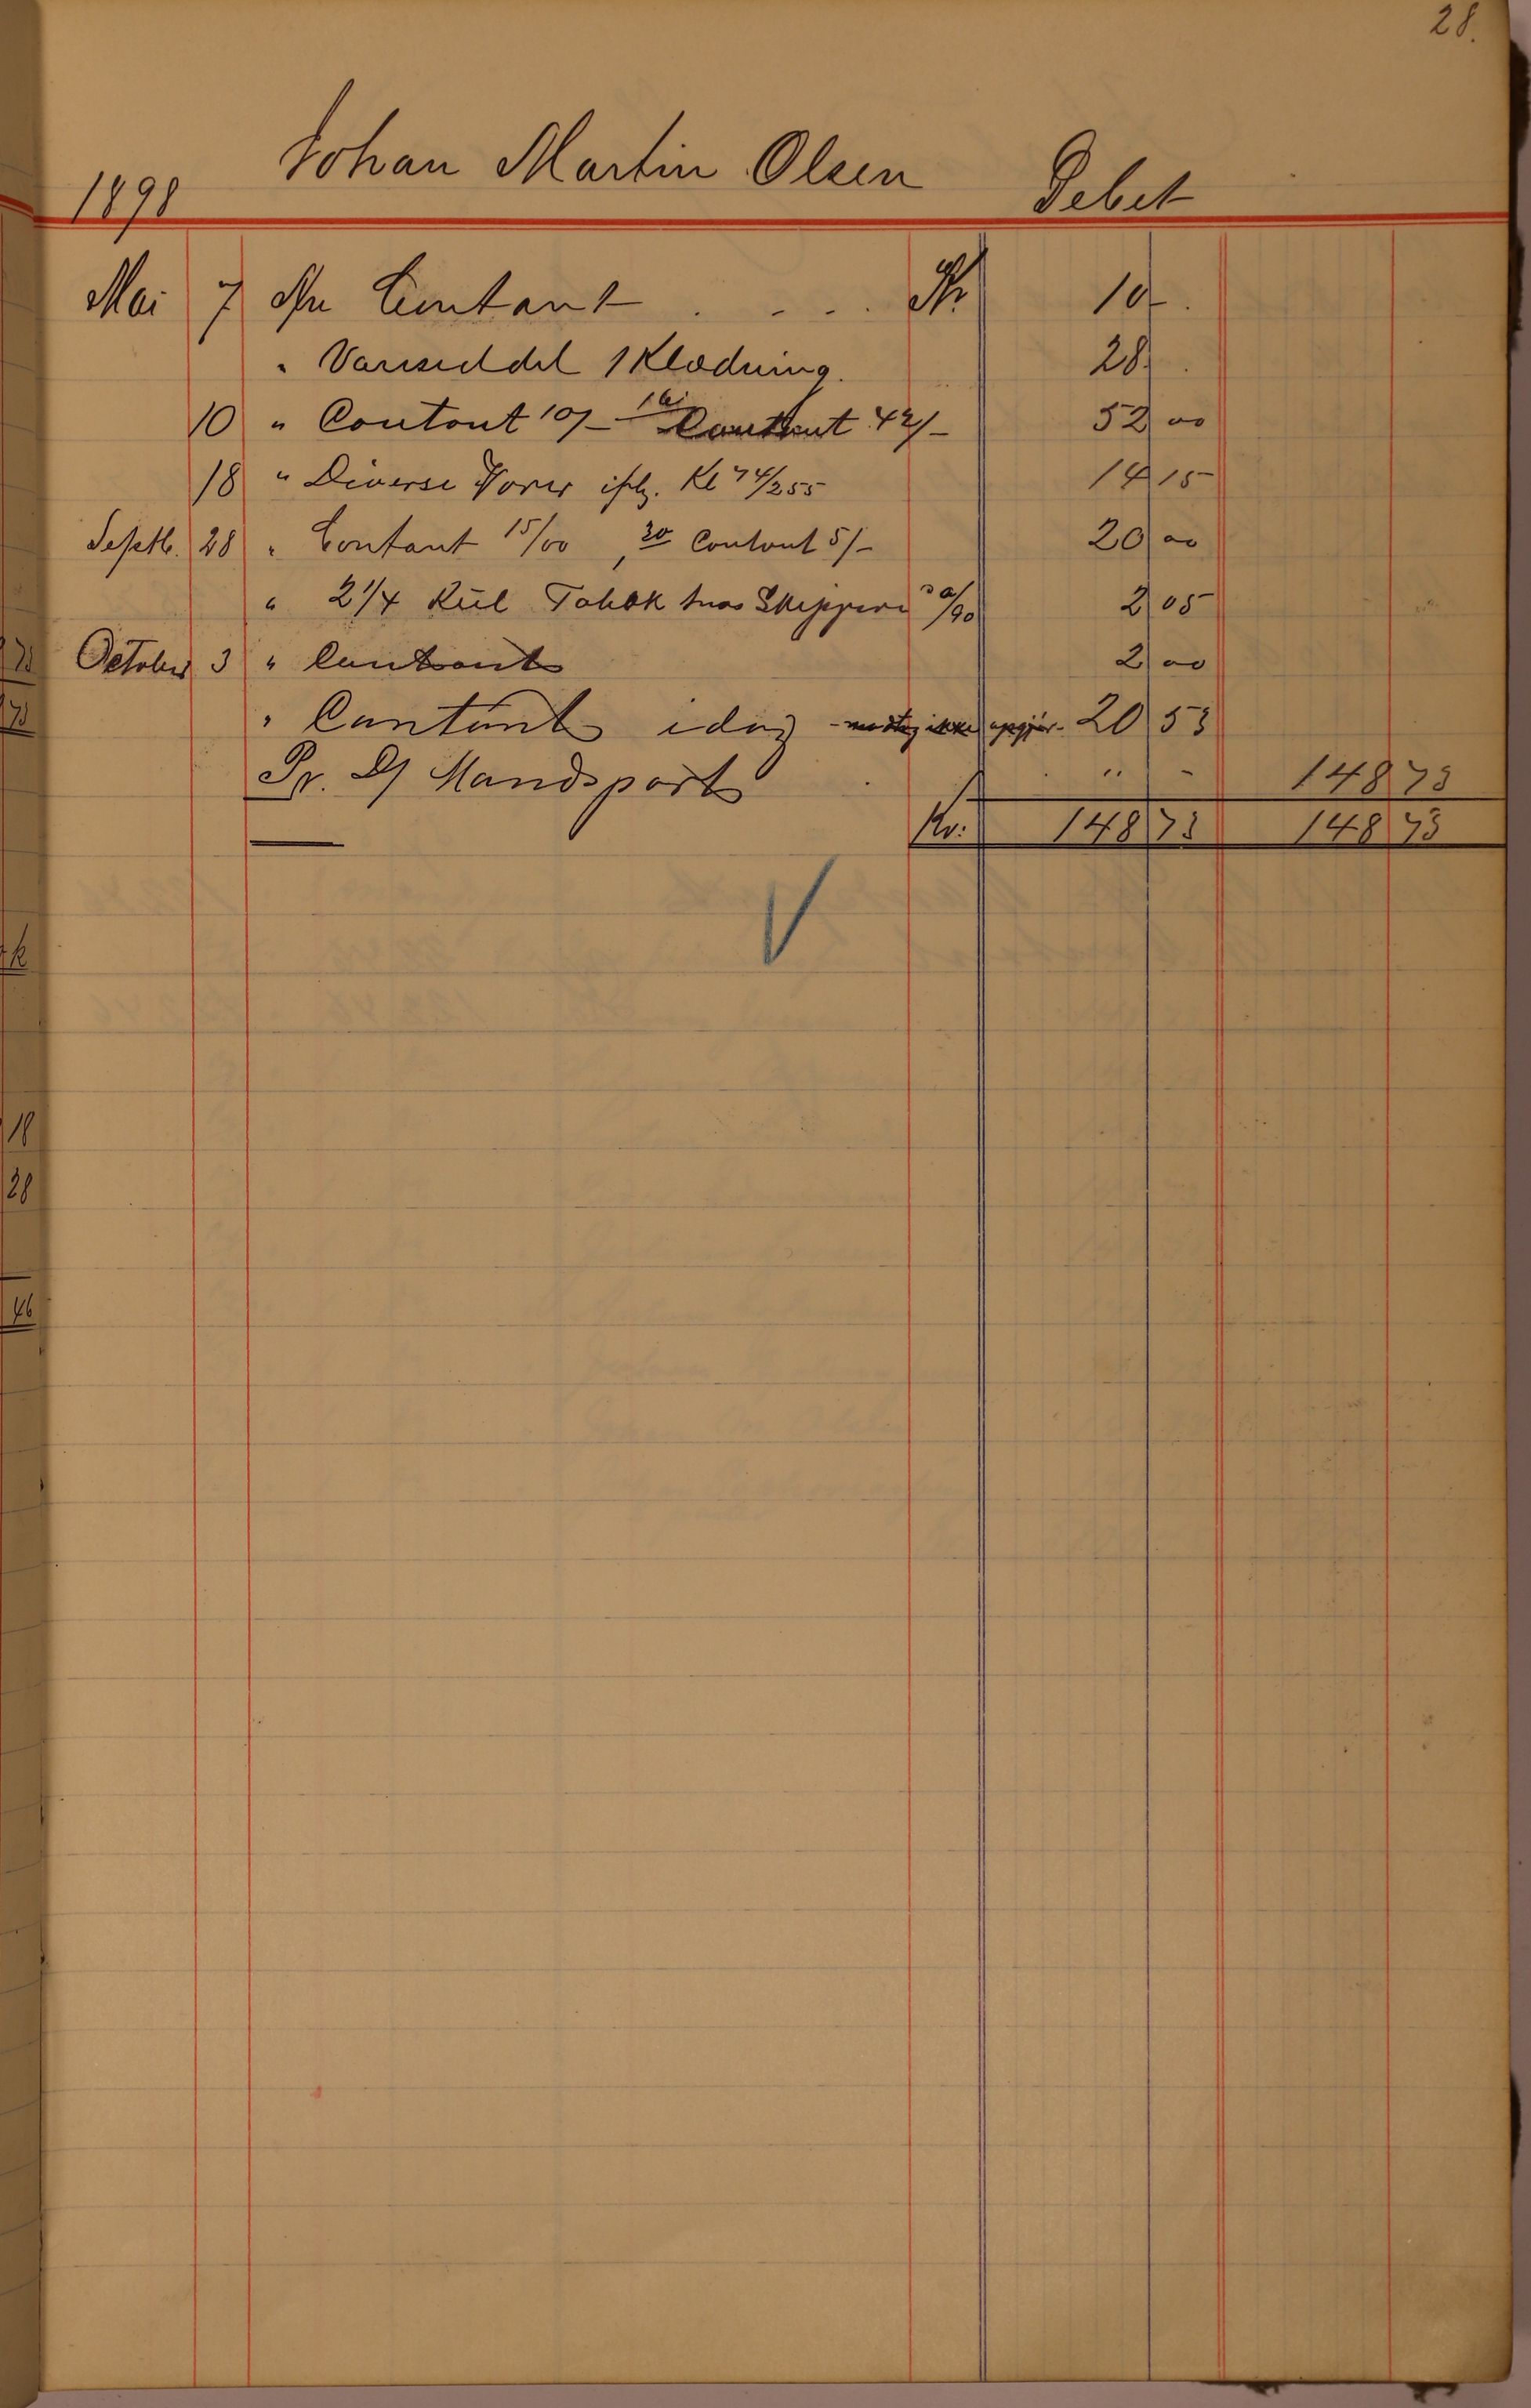 28.
1898 Johan Martin Olsen Debet
Mai 7 Pr Contant . . . . Kr. 10 -
" Vareseddel 1 Klædning. 28 .
10 " Contant 10/- 16 Contant 42/- 52 00
18 " Diverse Varer ifølg. Kl 74/255 14 15
Septb. 28 " Contant 15/00 , 30 Contant 5/- 20 00
" 2 1/4 Rül Tobak hos Skipperen a/90 2 05
October 3 " Contant 2 00
" Contant idag - ikke opgjør - 20 53
Pr. D/ Mandspart . " - 148 73
Kr: 148 73 148 73
73
73
18
28
46